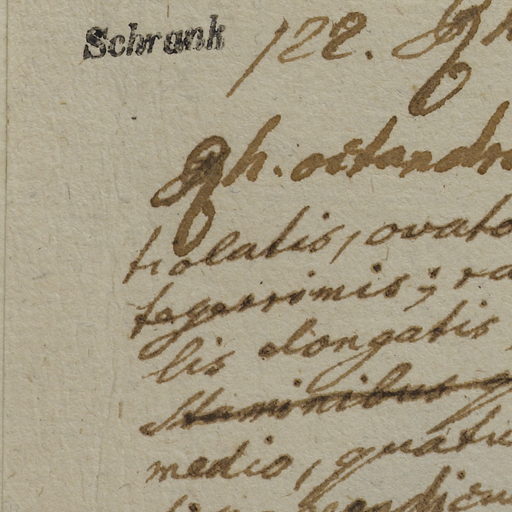 Schrank
122. Ph
Ph. octandr
tiolatis, ovato
tegerrimis; ra
lis elongatis
Staminibus
medio, quatu